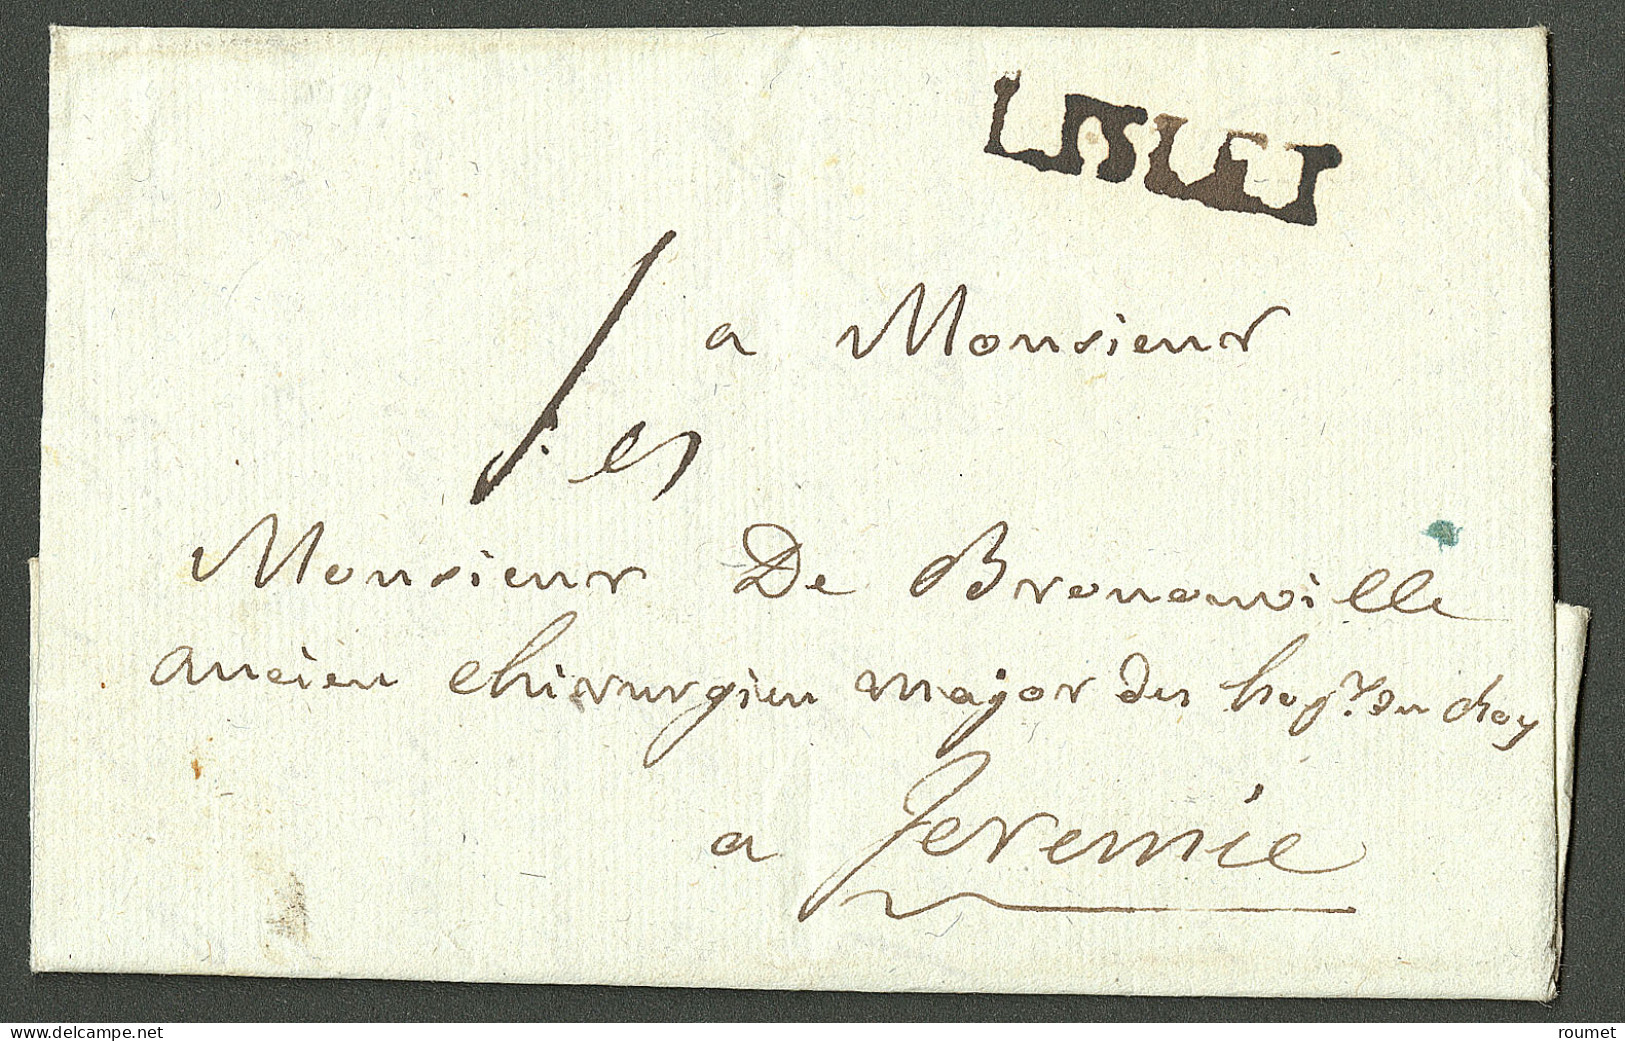 LISLET
a Monsieur
Monsieur De Brenonville
ancien chirurgien major des hopx. du Roy
a Jeremie
roumet